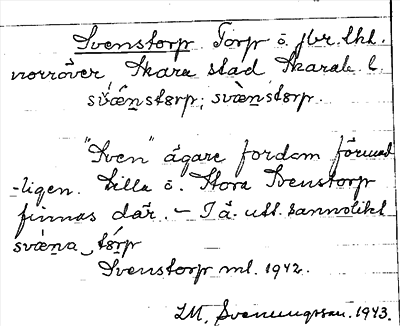 Svenstorp Torp o. jbr. lht.
norröver Skara stad Skarab. l.
svä̀nstɵrp; svä̀nstɵrp.
"Sven" ägare fordom förmod-
ligen. Lilla o. Stora Svenstorp
finnas där. – I ä. utt. sannolikt
svä̀na tɵ́rp
Svenstorp ml. 1942.
IM. Svenungsson. 1943.